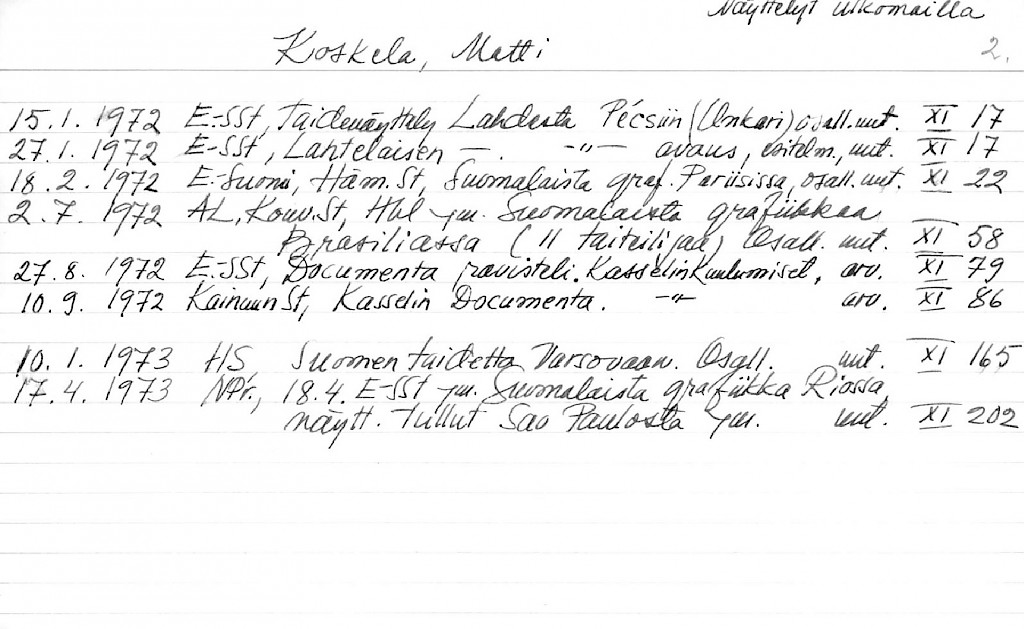 Näyttelyt ulkomailla
Koskela, Matti 2.
15.1. 1972 E-SSt, Taidenäyttely Lahdesta Pécsiin (Unkari) osall. uut. XI 17
27.1. 1972 E-SSt, Lahtelaisen —. -"- avaus, esitelm., uut. XI 17
18.2. 1972 E-Suomi, Häm.St, Suomalaista graf. Pariisissa, osall. uut. XI 22
2.7. 1972 AL, Kouv.St, Hbl ym. Suomalaista grafiikkaa
Brasiliassa (11 taiteilijaa) Osall. uut. XI 58
27.8. 1972 E-SSt, Documenta ravisteli. Kasselin Kuulumiset, arv. XI 79
10.9. 1972 Kainuun St, Kasselin Documenta. -"- arv. XI 86
10.1. 1973 HS, Suomen taidetta Varsovaan. Osall. uut. XI 165
17.4. 1973 NPr., 18.4. E-SSt ym. Suomalaista grafiikka Riossa,
näytt. tullut Sao Paulosta ym. uut. XI 202